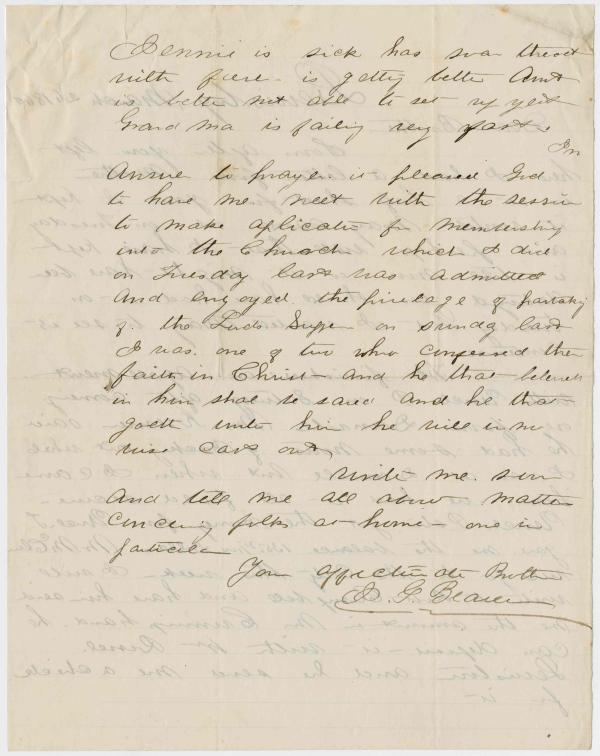 Jennie is sick has soar throat
with fever - is getting better Aunt
is better not able to set up yet
Grand Ma is failing very fast
In
Answer to prayer is pleased God
to have me meet with the session
to make aplication for membership
into the Church which I did
on Tuesday last was admitted
And enjoyed the privelage of partaking
of the Lords Supper on sunday last
I was one of two who confessed their
faith in Christ - and he that beleiveth
in him shal be saved And he that
goeth unto him he will in no
wise cast out
write me soon
And tell me all about matters
concerning folks at home - one in
particular
Your affectionate Brother